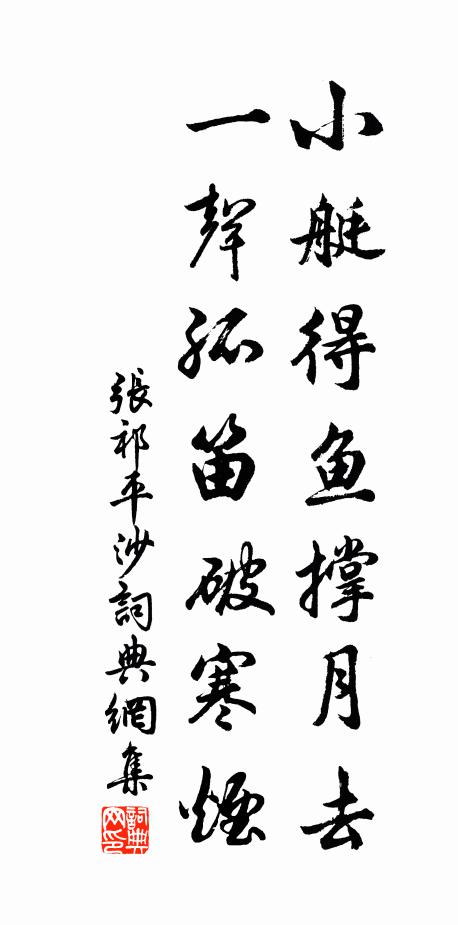 小艇得鱼撑月去
一聲孤笛破寒煙
張祁平沙詞典網集
詞典網印